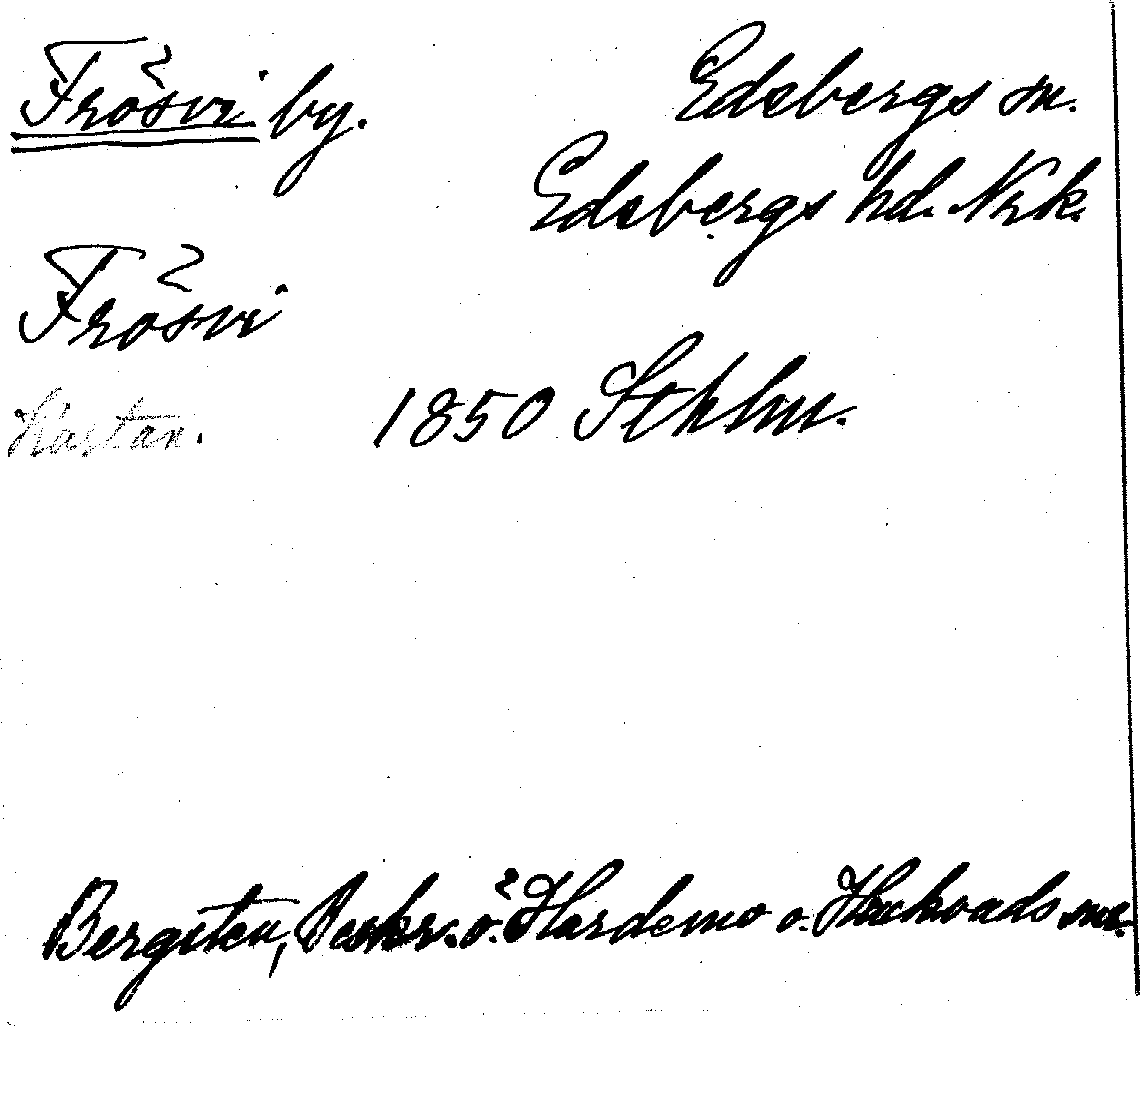 Frösvi by. Edsbergs sn.
Edsbergs hd. Nrk.
Frösvi
Kartan. 1850 Sthlm.
Bergsten, Beskr. ö. Hardemo o. Hackvads snr.